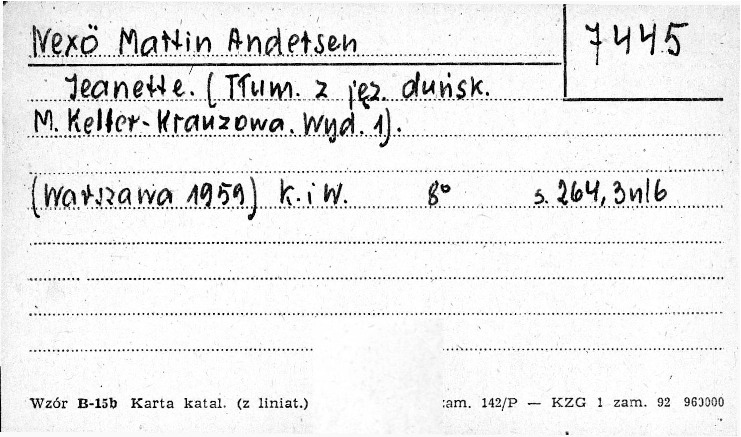 Nexö Martin Andersen
7445
Jeanette. (Tłum. z jęz. duńsk.
M. Kelter-Krauzowa. Wyd. 1).
(Warszawa 1959) K. i W. 8° s. 264, 3nlb
Wzór B-15b Karta katal. (z liniat.) zam. 142/P — KZG 1 zam. 92 960000